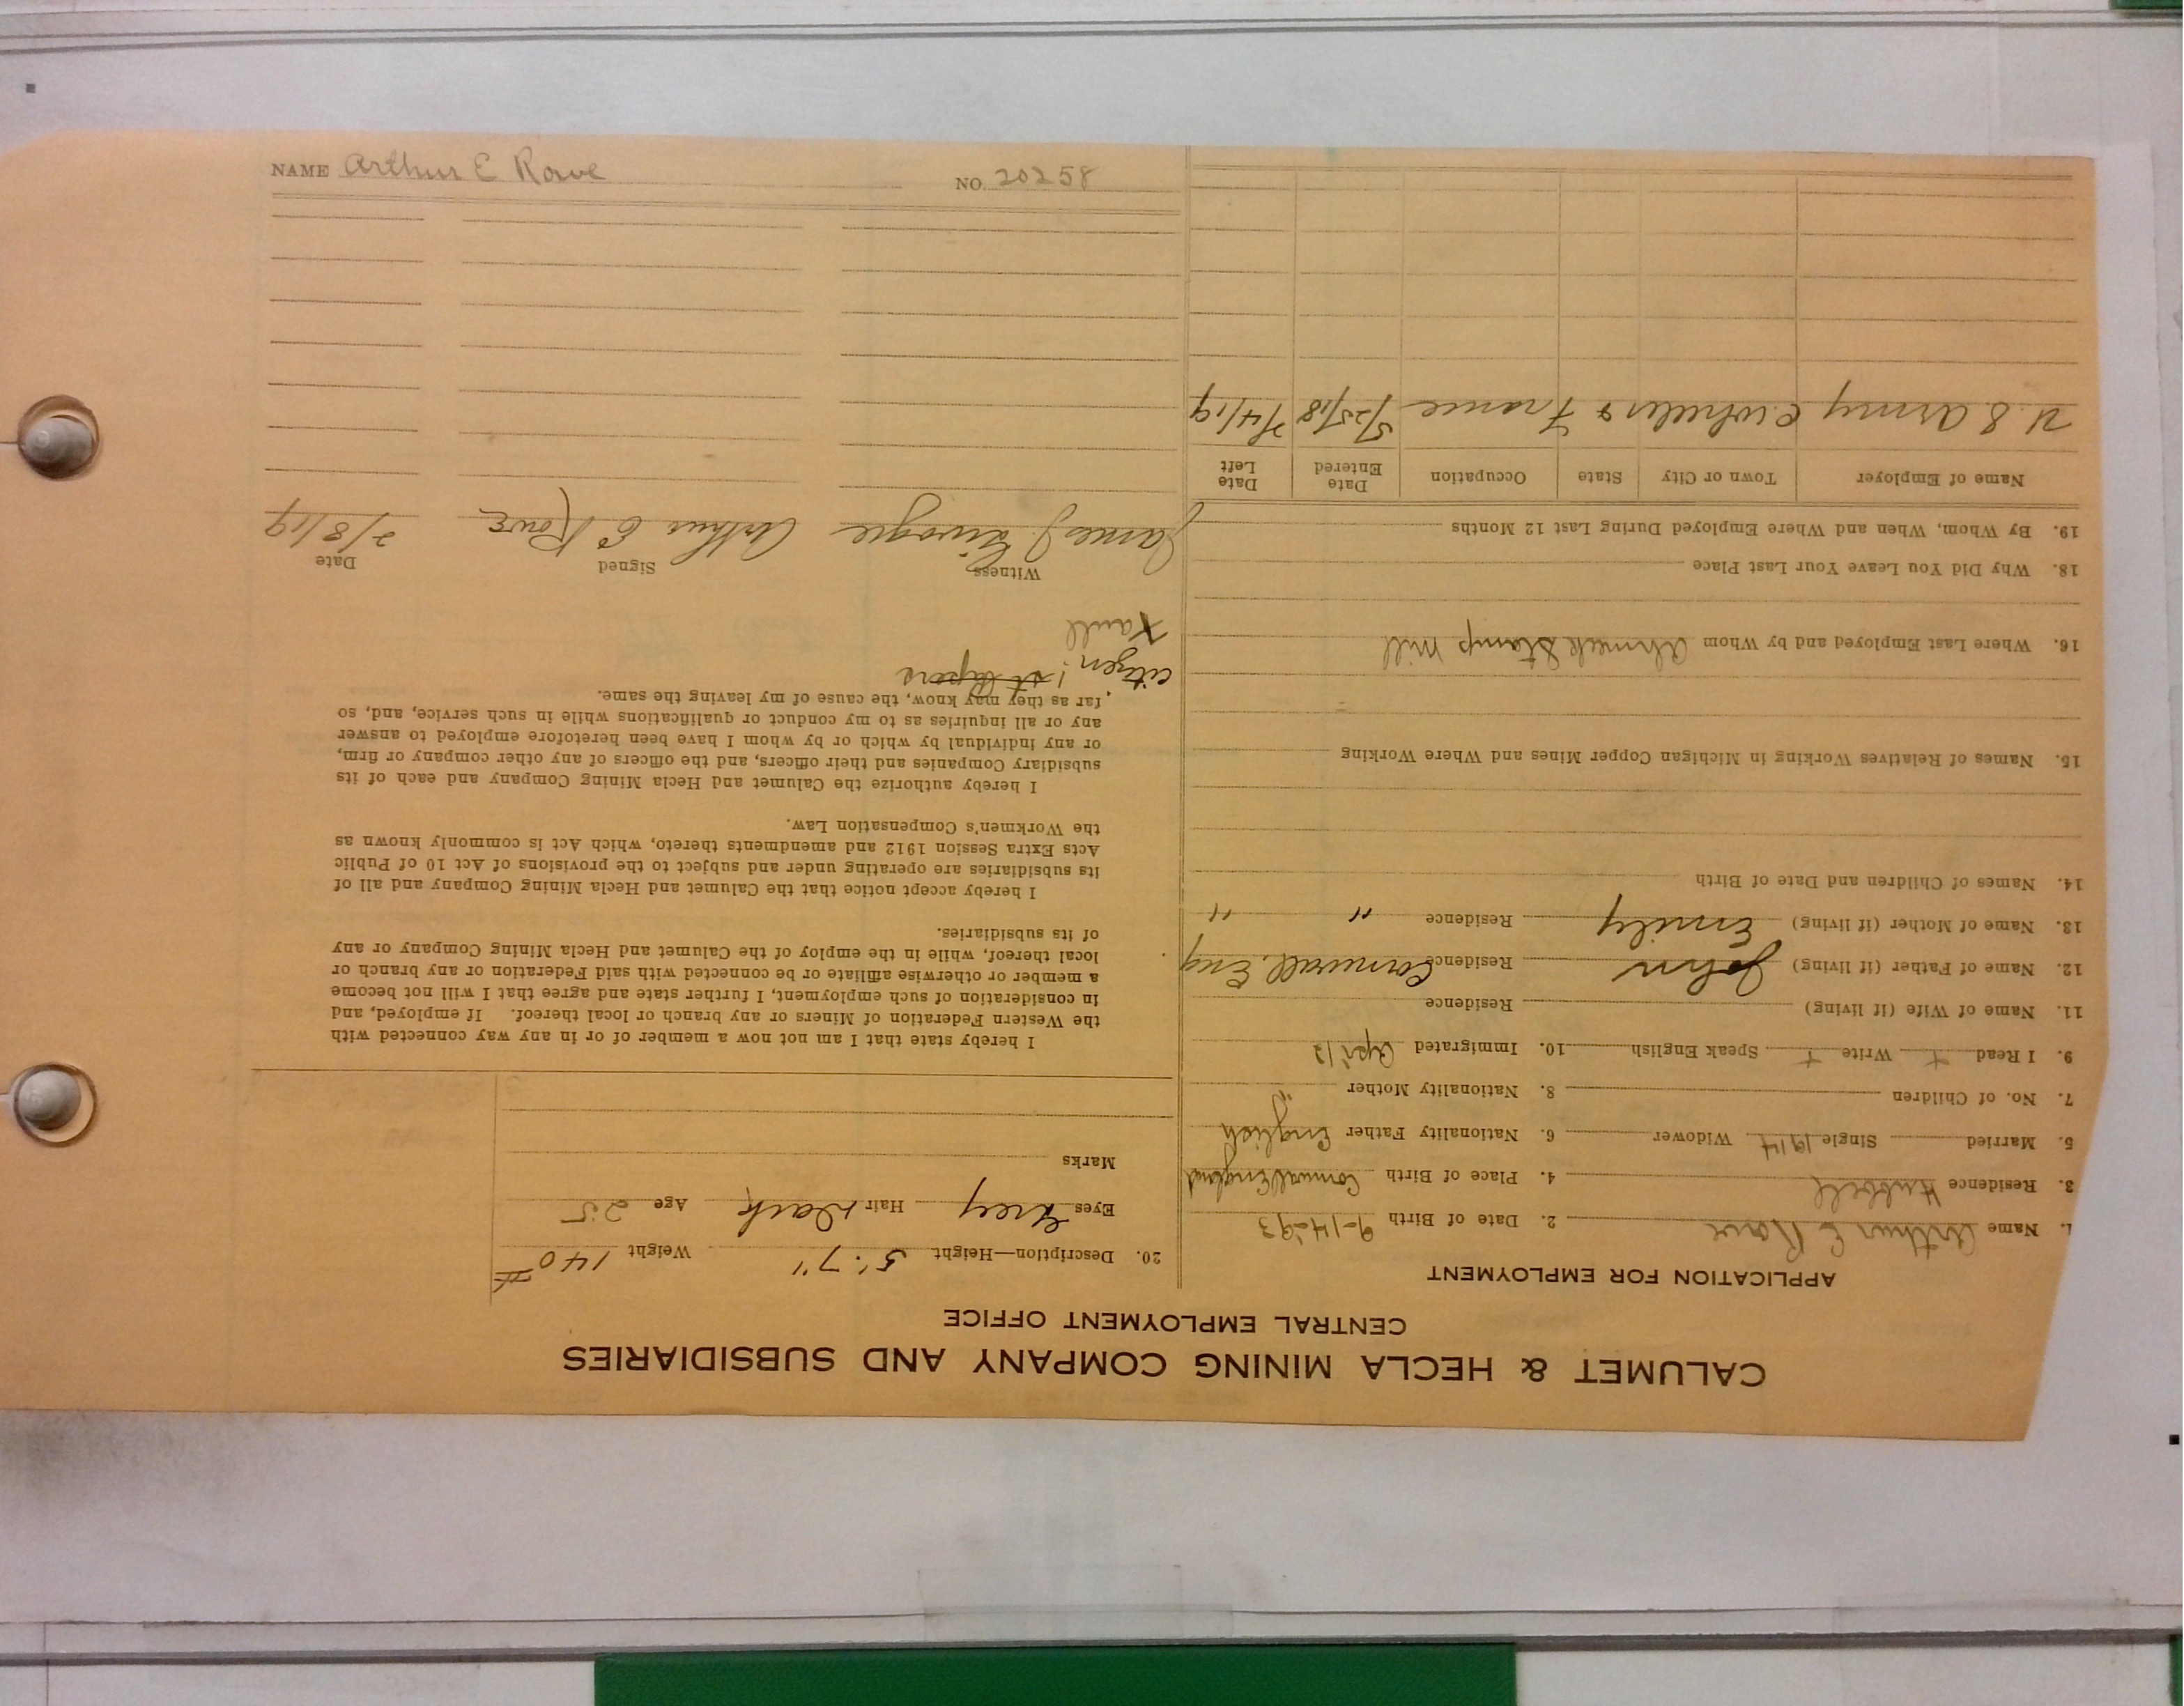 CALUMET & HECLA MINING COMPANY AND SUBSIDIARIES
CENTRAL EMPLOYMENT OFFICE
APPLICATION FOR EMPLOYMENT
1. Name Arthur E Rowe 2. Date of Birth 9-14-93
3. Residence Hubbell 4. Place of Birth Cornwall England
5. Married Single 1914 Widower 6. Nationality Father English
7. No. of Children 8. Nationality Mother "
9. I Read + Write + Speak English 10. Immigrated Apr 12
11. Name of Wife (if living) Residence
12. Name of Father (if living) John Residence Cornwall. Eng
13. Name of Mother (if living) Emily Residence " "
14. Names of Children and Date of Birth
15. Names of Relatives Working in Michigan Copper Mines and Where Working
16. Where Last Employed and by Whom Ahmeek Stamp Mill
18. Why Did You Leave Your Last Place
19. By Whom, When and Where Employed During Last 12 Months
Name of Employer Town or City State Occupation Date Entered Date Left
U. S. Army France 5/25/18 2/4/19
20. Description—Height 5' 7" Weight 140 #
Eyes Grey Hair Dark Age 25
Marks
I hereby state that I am not now a member of or in any way connected with
the Western Federation of Miners or any branch or local thereof. If employed, and
in consideration of such employment, I further state and agree that I will not become
a member or otherwise affiliate or be connected with said Federation or any branch or
local thereof, while in the employ of the Calumet and Hecla Mining Company or any
of its subsidiaries.
I hereby accept notice that the Calumet and Hecla Mining Company and all of
its subsidiaries are operating under and subject to the provisions of Act 10 of Public
Acts Extra Session 1912 and amendments thereto, which Act is commonly known as
the Workmen's Compensation Law.
I hereby authorize the Calumet and Hecla Mining Company and each of its
subsidiary Companies and their officers, and the officers of any other company or firm,
or any individual by which or by whom I have been heretofore employed to answer
any or all inquiries as to my conduct or qualifications while in such service, and, so
far as they may know, the cause of my leaving the same.
citizen 1st papers
Witness Signed Date
James J. Arthur E Rowe 2/8/19
NAME Arthur E Rowe NO. 20258